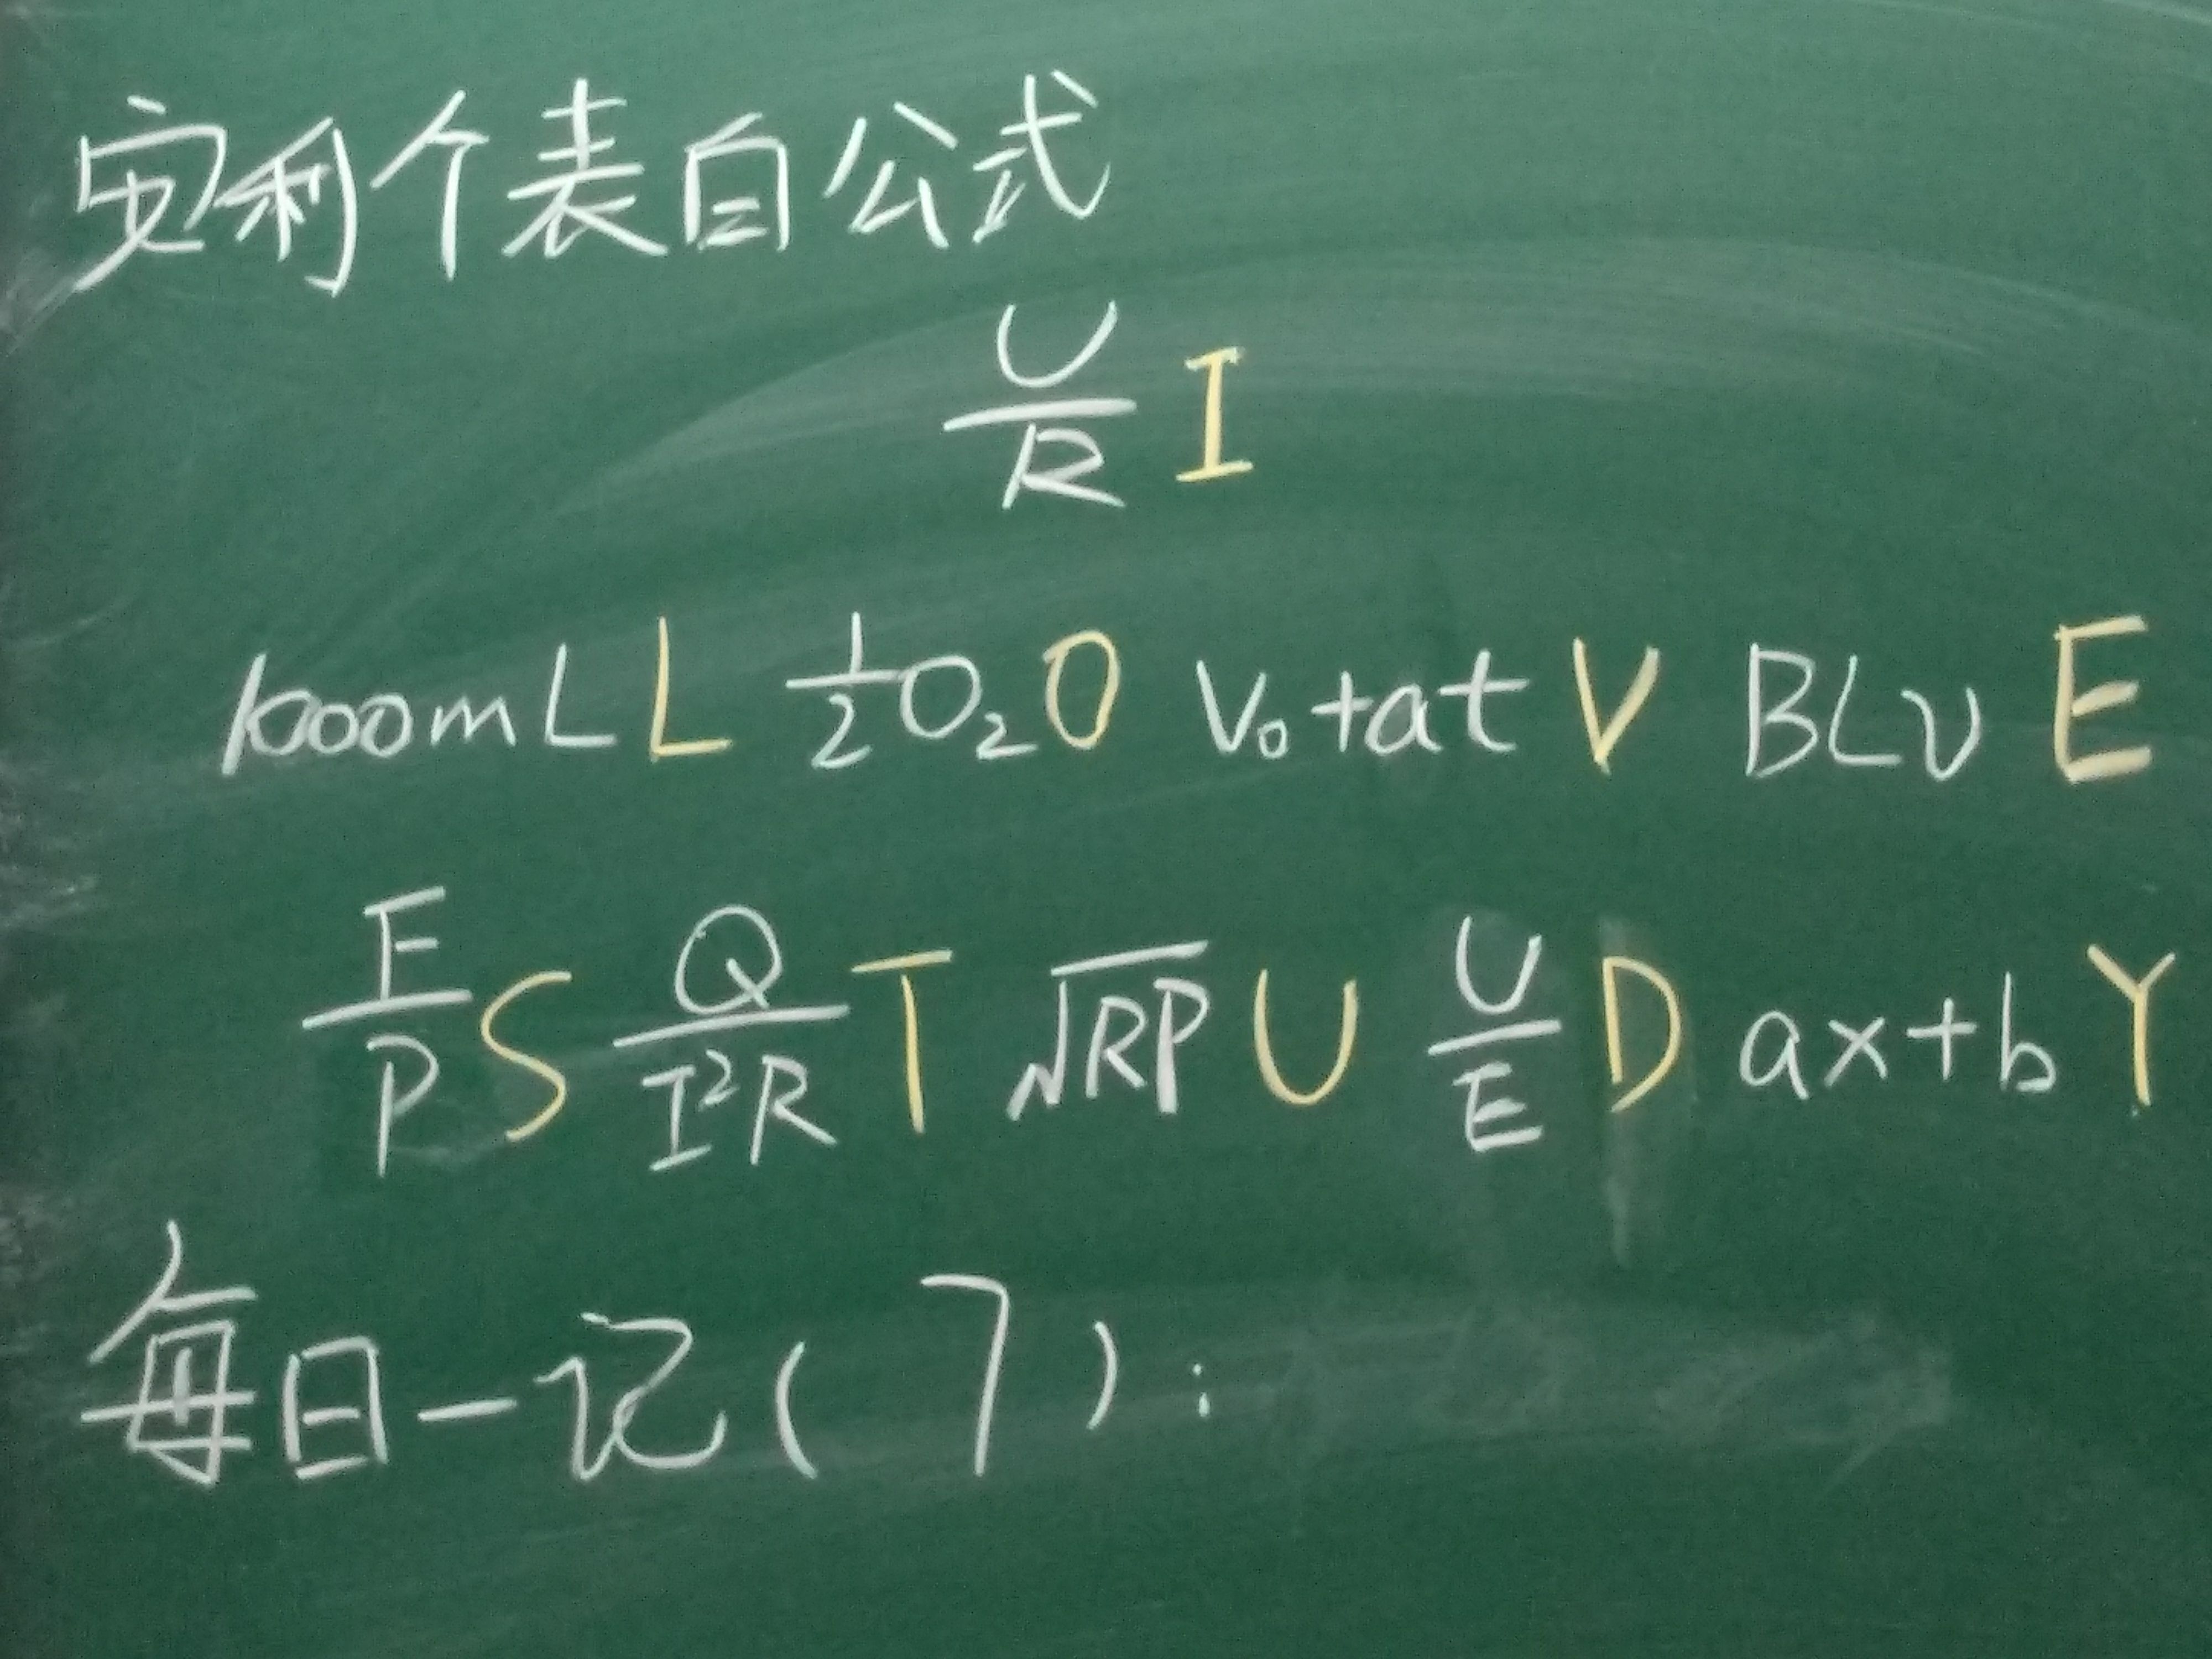 安利个表白公式
U/R I
1000mL L 1/2 O₂ O V₀+at V BLv E
F/P S Q/I²R T √RP U U/E D ax+b Y
每日一记(7):